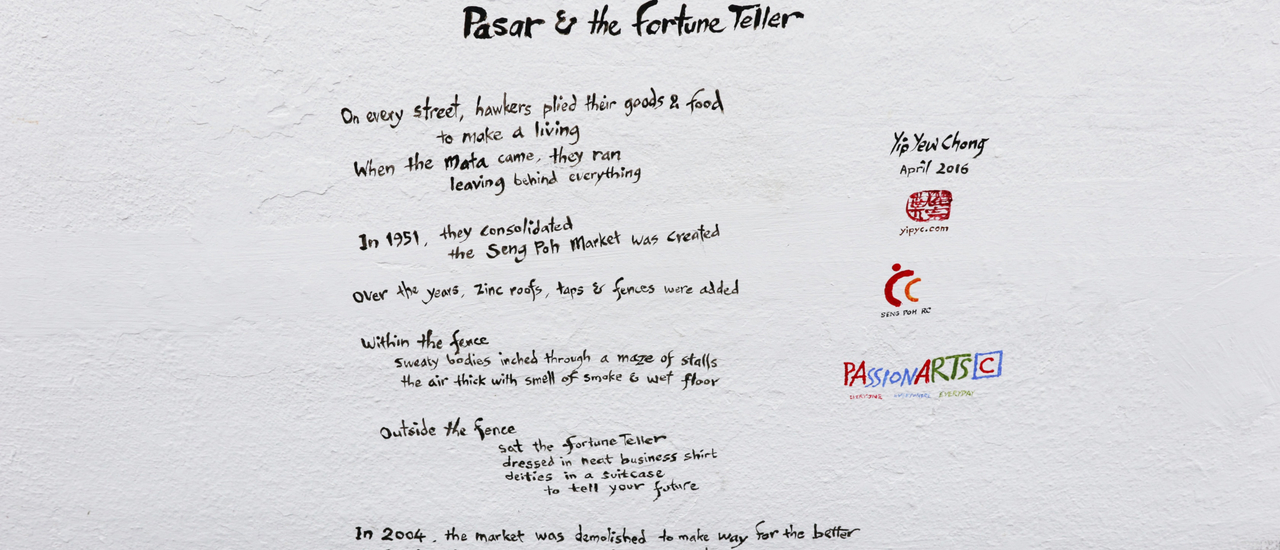 Pasar & the Fortune Teller
On every street, hawkers plied their goods & food
to make a living
When the Mata came, they ran
leaving behind everything
In 1951, they consolidated
the Seng Poh Market was created
Over the years, zinc roofs, taps & fences were added
Within the fence
sweaty bodies inched through a maze of stalls
the air thick with smell of smoke & wet floor
Outside the fence
sat the fortune Teller
dressed in neat business shirt
deities in a suitcase
to tell your future
In 2004, the market was demolished to make way for the better
Yip Yew Chong
April 2016
yipyc.com
SENG POH RC
PASSIONARTS C
EVERYDAY